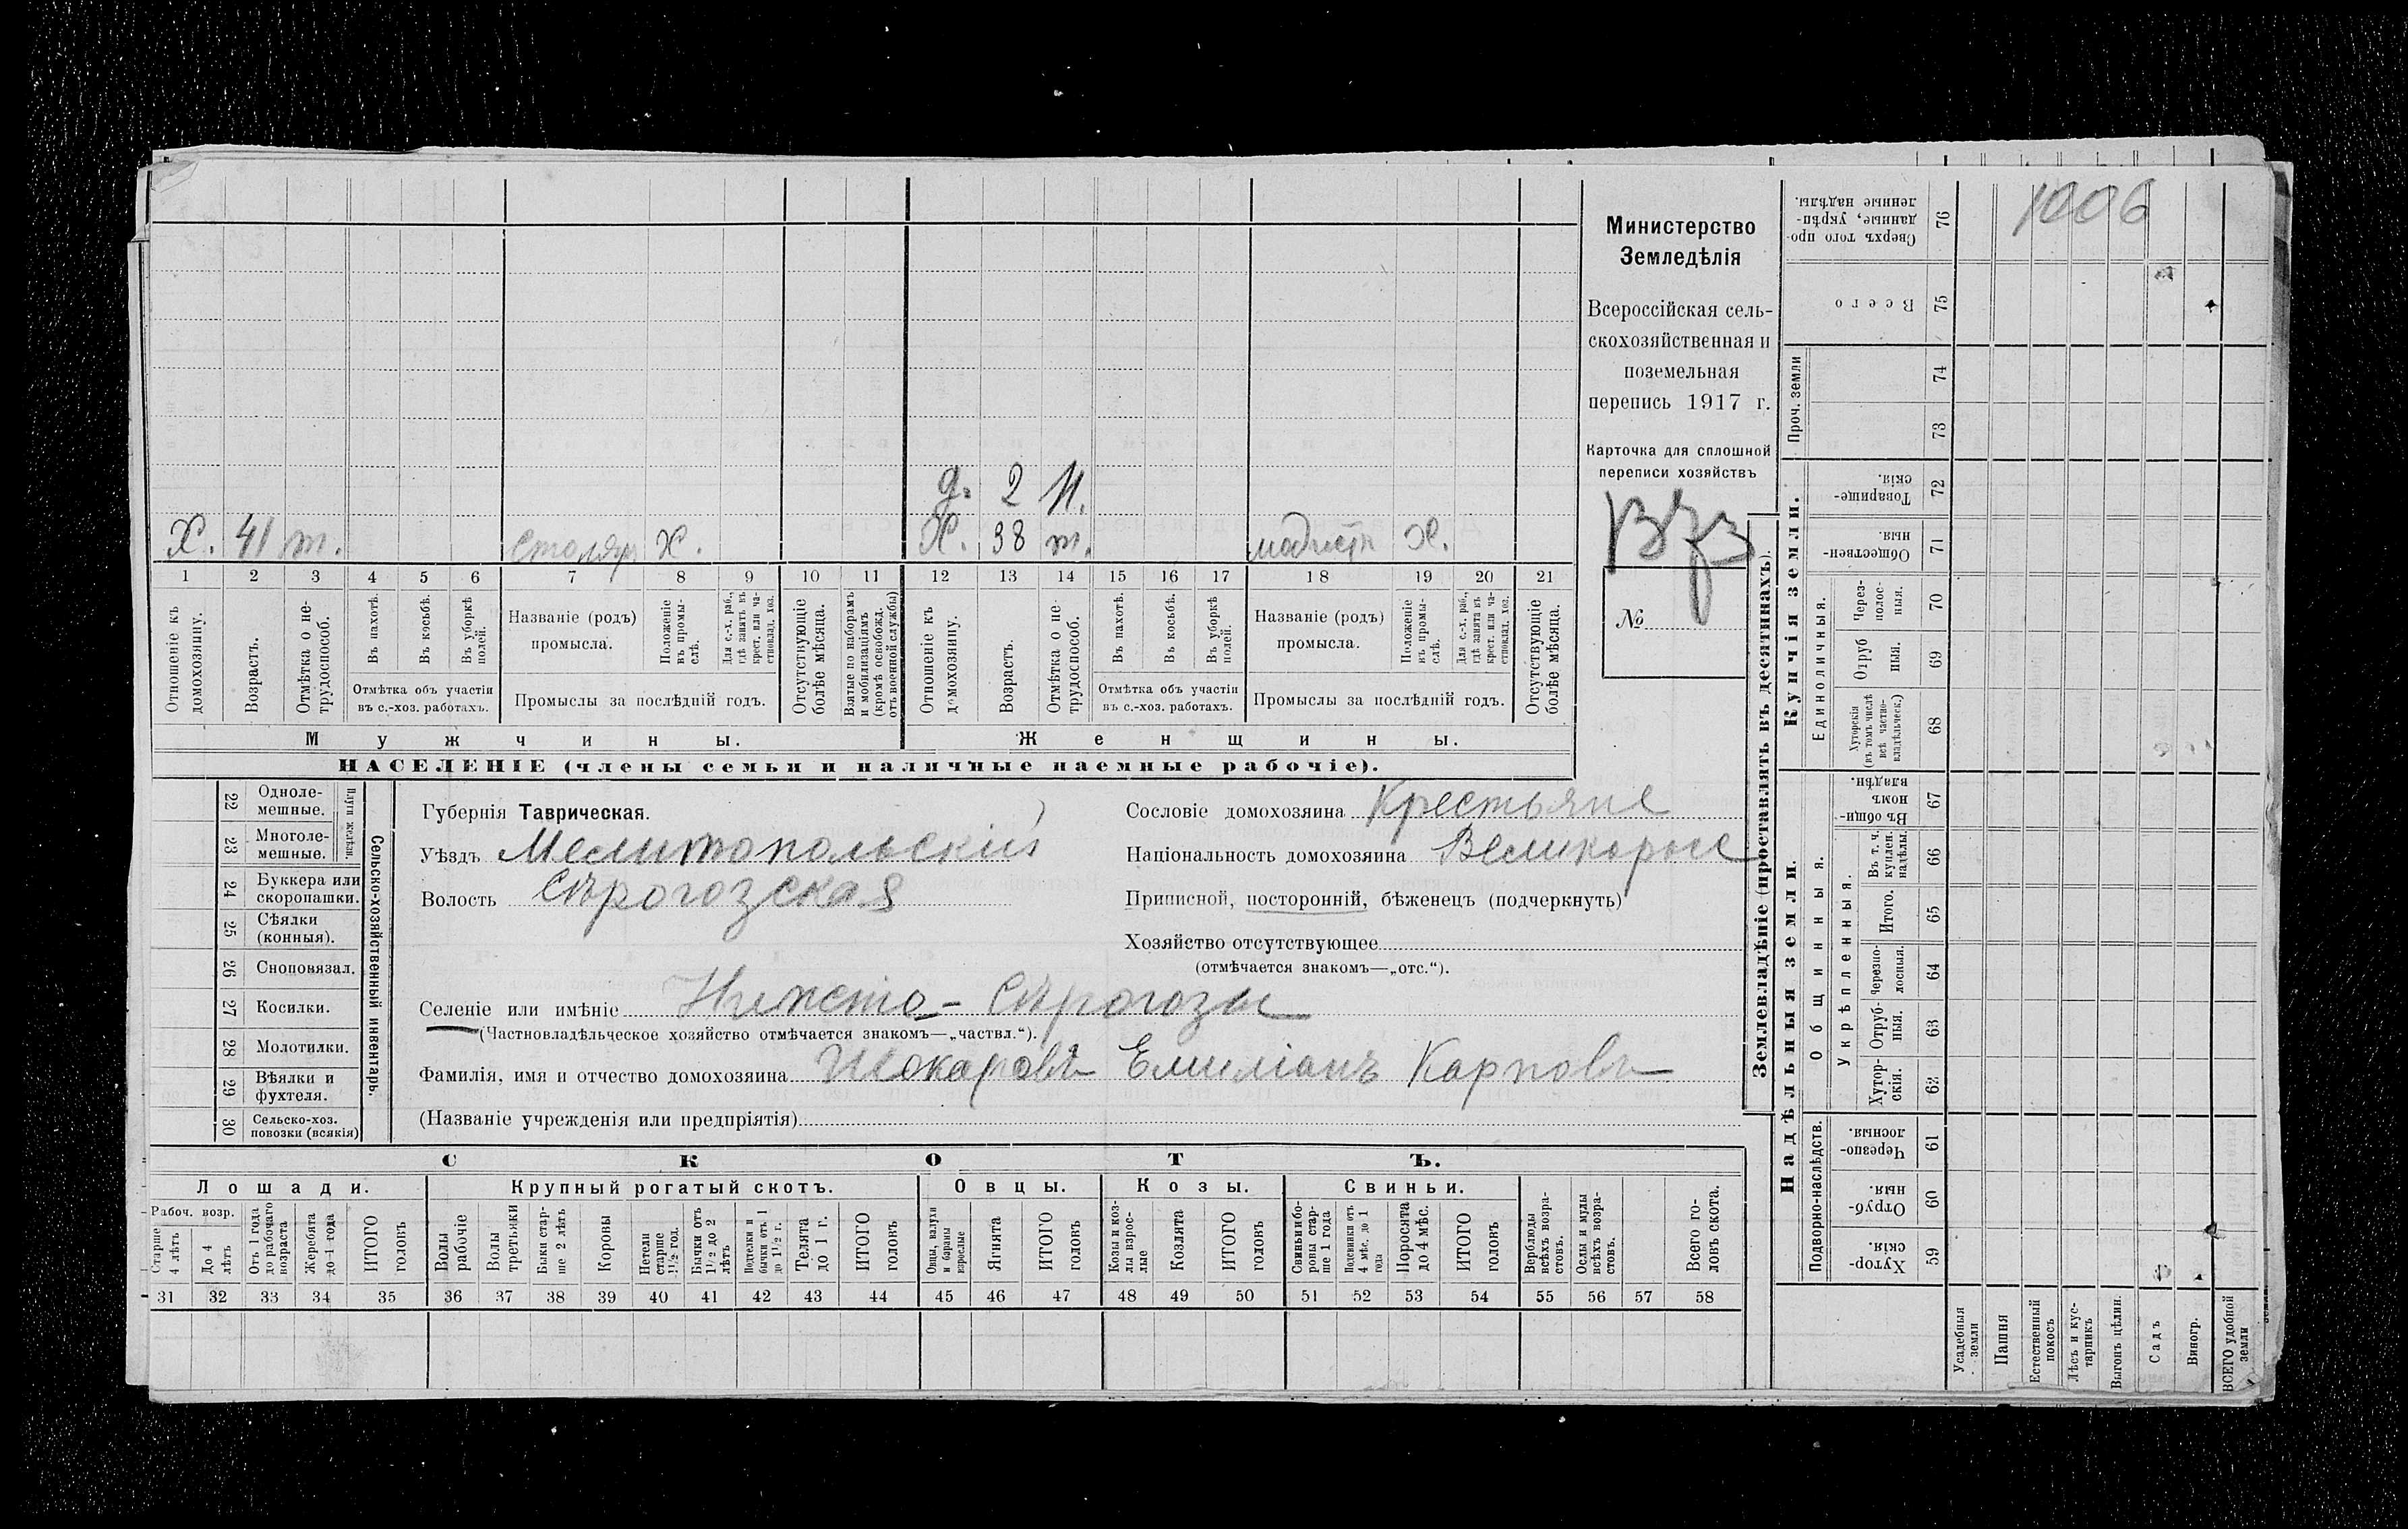 1006
д. 2 н.
Х. 41 т. столяр Х. Х. 38 т. модистк Х.
1 2 3 4 5 6 7 8 9 10 11 12 13 14 15 16 17 18 19 20 21
Отношеніе къ домохозяину.
Возрастъ.
Отмѣтка о нетрудоспособ.
Въ пахотѣ.
Въ косьбѣ.
Въ уборкѣ полей.
Отмѣтка объ участіи
въ с.-хоз. работахъ.
Названіе (родъ)
промысла.
Положеніе въ промыслѣ.
Для с.-х. раб., гдѣ занятъ въ крест. или частновлад. хоз.
Промыслы за послѣдній годъ.
Отсутствующіе болѣе мѣсяца.
Взятые по наборамъ и мобилизаціямъ (кромѣ освобожд. отъ военной службы)
Отношеніе къ домохозяину.
Возрастъ.
Отмѣтка о нетрудоспособ.
Въ пахотѣ.
Въ косьбѣ.
Въ уборкѣ полей.
Отмѣтка объ участіи
въ с.-хоз. работахъ.
Названіе (родъ)
промысла.
Положеніе въ промыслѣ.
Для с.-х. раб., гдѣ занята въ крест. или частновлад. хоз.
Промыслы за послѣдній годъ.
Отсутствующіе болѣе мѣсяца.
Мужчины. Женщины.
НАСЕЛЕНІЕ (члены семьи и наличные наемные рабочіе).
Министерство
Земледѣлія
Всероссійская сель-
скохозяйственная и
поземельная
перепись 1917 г.
Карточка для сплошной
переписи хозяйствъ
№
Сельско-хозяйственный инвентарь.
Плуги желѣзн.
22 Одноле-
мешные.
23 Многоле-
мешные.
24 Буккера или
скоропашки.
25 Сѣялки
(конныя).
26 Сноповязал.
27 Косилки.
28 Молотилки.
29 Вѣялки и
фухтеля.
30 Сельско-хоз.
повозки (всякія)
Губернія Таврическая.
Уѣздъ Мелитопольскій
Волость Сѣрогозская
Сословіе домохозяина Крестьяне
Національность домохозяина Великорос
Приписной, посторонній, бѣженецъ (подчеркнуть)
Хозяйство отсутствующее
(отмѣчается знакомъ—„отс.“).
Селеніе или имѣніе Нижніе - Сѣрогозы
(Частновладѣльческое хозяйство отмѣчается знакомъ—„частвл.“).
Фамилія, имя и отчество домохозяина Шокаровъ Емиліанъ Карповъ
(Названіе учрежденія или предпріятія)
СКОТЪ.
Лошади. Крупный рогатый скотъ. Овцы. Козы. Свиньи.
Рабоч. возр.
Старше 4 лѣтъ
До 4 лѣтъ
Отъ 1 года до рабочаго возраста
Жеребята до 1 года
ИТОГО головъ
Волы рабочіе
Волы третьяки
Быки старше 2 лѣтъ
Коровы
Нетели старше 1½ год.
Бычки отъ 1½ до 2 лѣтъ
Подтелки и бычки отъ 1 до 1½ г.
Телята до 1 г.
ИТОГО головъ
Овцы, валухи и бараны взрослые
Ягнята
ИТОГО головъ
Козы и козлы взрослые
Козлята
ИТОГО головъ
Свиньи и боровы старше 1 года
Подсвинки отъ 4 мѣс. до 1 года
Поросята до 4 мѣс.
ИТОГО головъ
Верблюды всѣхъ возрастовъ.
Ослы и мулы всѣхъ возрастовъ.
Всего головъ скота.
31 32 33 34 35 36 37 38 39 40 41 42 43 44 45 46 47 48 49 50 51 52 53 54 55 56 57 58
Землевладѣніе (проставлять въ десятинахъ).
Надѣльныя земли.
Купчія земли.
Проч. земли
Подворно-наслѣдств.
Общинныя.
Укрѣпленныя.
Единоличныя.
Сверхъ того проданные, укрѣпленные надѣлы. 76
Всего 75
74
73
Товарищескія. 72
Общественныя. 71
Черезполосныя. 70
Отрубныя. 69
Хуторскія (въ томъ числѣ всѣ частновладѣльческ.) 68
Въ общиномъ владѣн. 67
Въ т. ч. куплен. надѣлы. 66
Итого. 65
Черезполосныя. 64
Отрубныя. 63
Хуторскія. 62
Черезполосныя. 61
Отрубныя. 60
Хуторскія. 59
Усадебныя земли
Пашня
Естественный покосъ
Лѣсъ и кустарникъ
Выгонъ цѣлин.
Садъ
Виногр.
ВСЕГО удобной земли